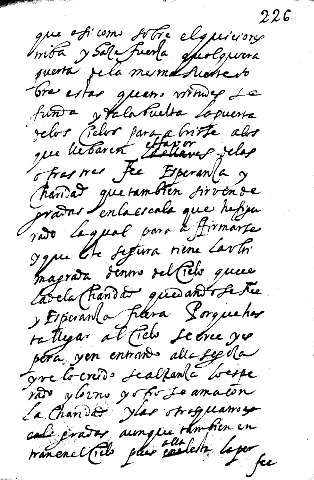 226
que asi como sobre el quicio es
triba y haze fuerza qualquiera
puerta de la mesma suerte so
bre estas quatro virtudes se
funda y da la buelta la puerta
de los Cielos para abrirse a los
que llebaren las llaves de las
otras tres Fee Esperanza y
Charidad que tambien sirven de
gradas en la escala que he figu
rado la qual para afirmarse
y que este segura tiene la ulti
ma grada dentro del Cielo que es
la de la Charidad quedandose Fee
y Esperanza fuera Porque has
ta llegar al Cielo se cree y es
pera y en entrando alla se goza
y ve lo creido se alcanza lo espe
rado y lo uno y otro se ama con
la Charidad y las otras quatro es
cali gradas aunque tambien en
tran en el Cielo pues alla esta la per
fee